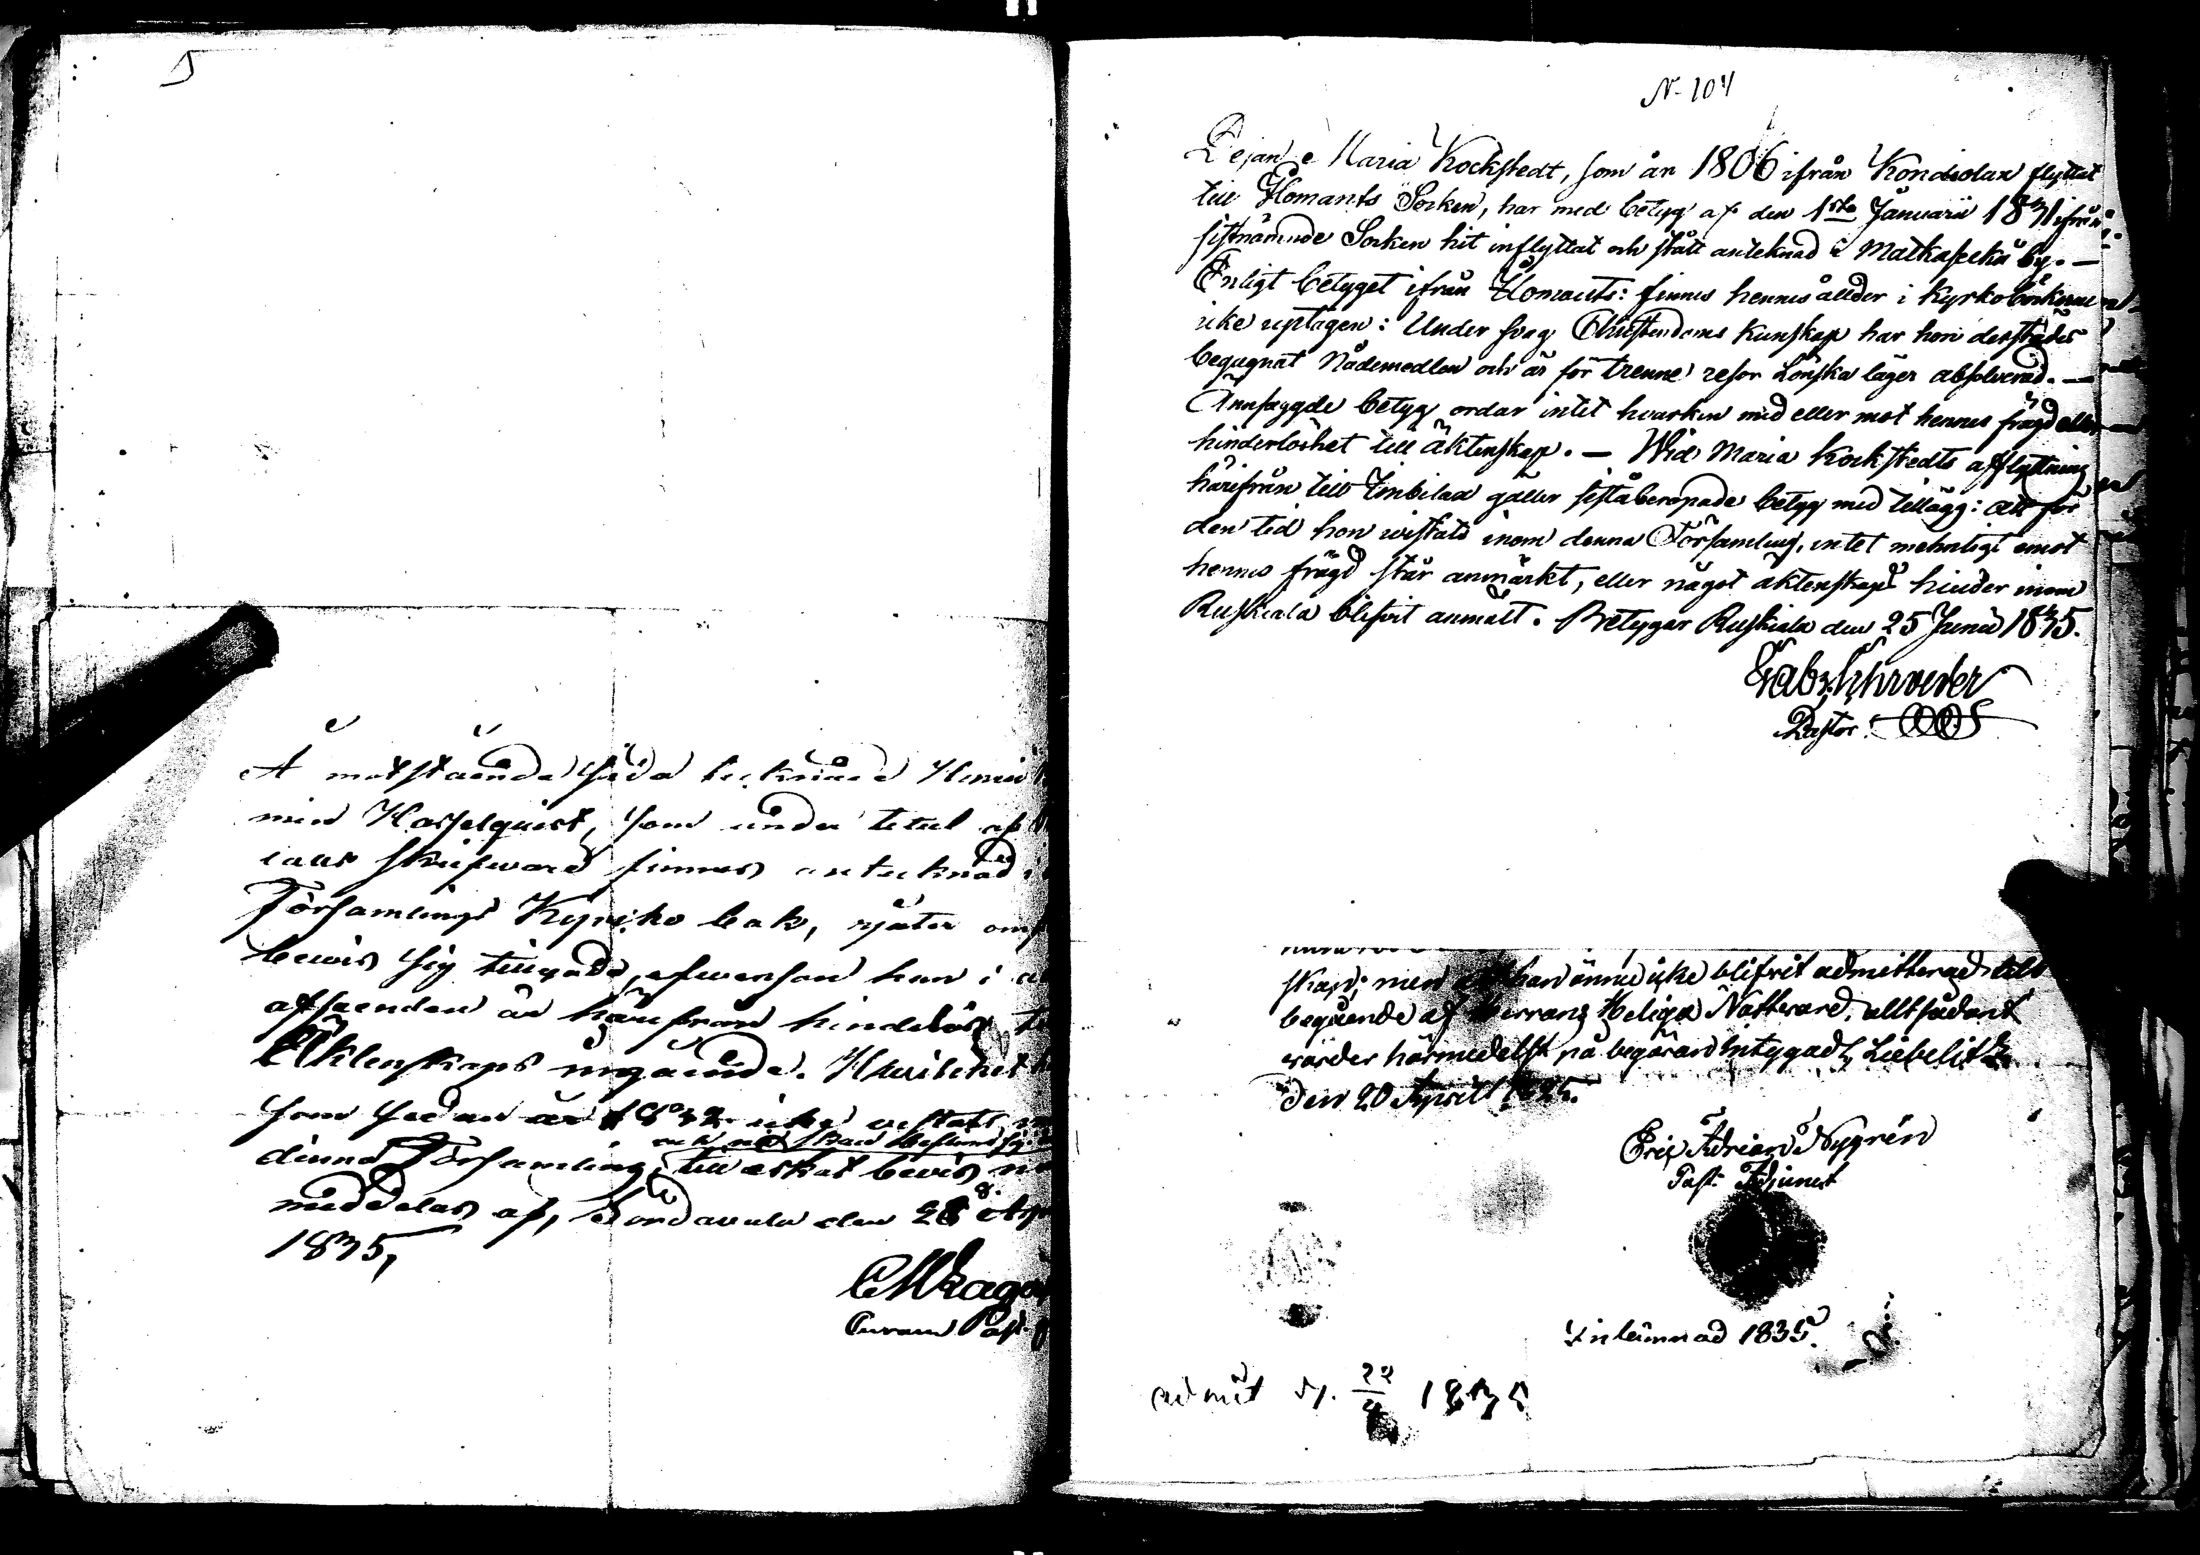 Å motstående sida tecknade
min Hasselquist, som under titel af
finnes antecknad i
Församlings Kyrko bok, njuter
bewis sig tillgodo, äfwensom han i
afseenden är härifrån hinderlös
Äktenskaps ingående. Hwilchet
som sedan år 1832 icke vistats
denna Församling, till äskat bevis
meddelas af, Sordavala den 28
1835,
Past.
N. 104
Pejan e Maria Kockstedt, som år 1806 ifrån Kondiolax flyttat
till Ilomants Socken, har med betyg af den 1sta Januarii 1831 ifrån
sistnämnde Socken hit inflyttat och stått anteknad i Matkaselkä by. —
Enligt betyget ifrån Ilomants: finnes hennes ållder i Kyrkoböckerne
icke uptagen: Under svag Christendoms kunskap har hon derstädes
begagnat Nådemedlen och är för trenne resor Lönska läger absolverad. —
Ännsaggde betyg ordar intet hvarken med eller mot hennes frägd eller
hinderlöshet till äktenskap. — Wid Maria Kockstedts afflyttning
härifrån till Imbilax gäller siståberopade betyg med tillägg: att för
den tid hon wistats inom denna Församling, intet mehnligt emot
hennes frägd står anmärkt, eller något äktenskaps hinder inom
Ruskiala blifvit anmält. Betygar Ruskiala den 25 Junii 1835.
Gab. Schroeder
Pastor.
skap; men att han ännu icke blifvit admitterad till
begående af Herrans Heliga Nattvard, allt sådant
warder härmedelst på begäran intygadt, Liebelitz
den 20 April 1835.
Eric Adrian Nygrén
Past. Adjunct
Inlämnad 1835.
admit d. 22/4 1835